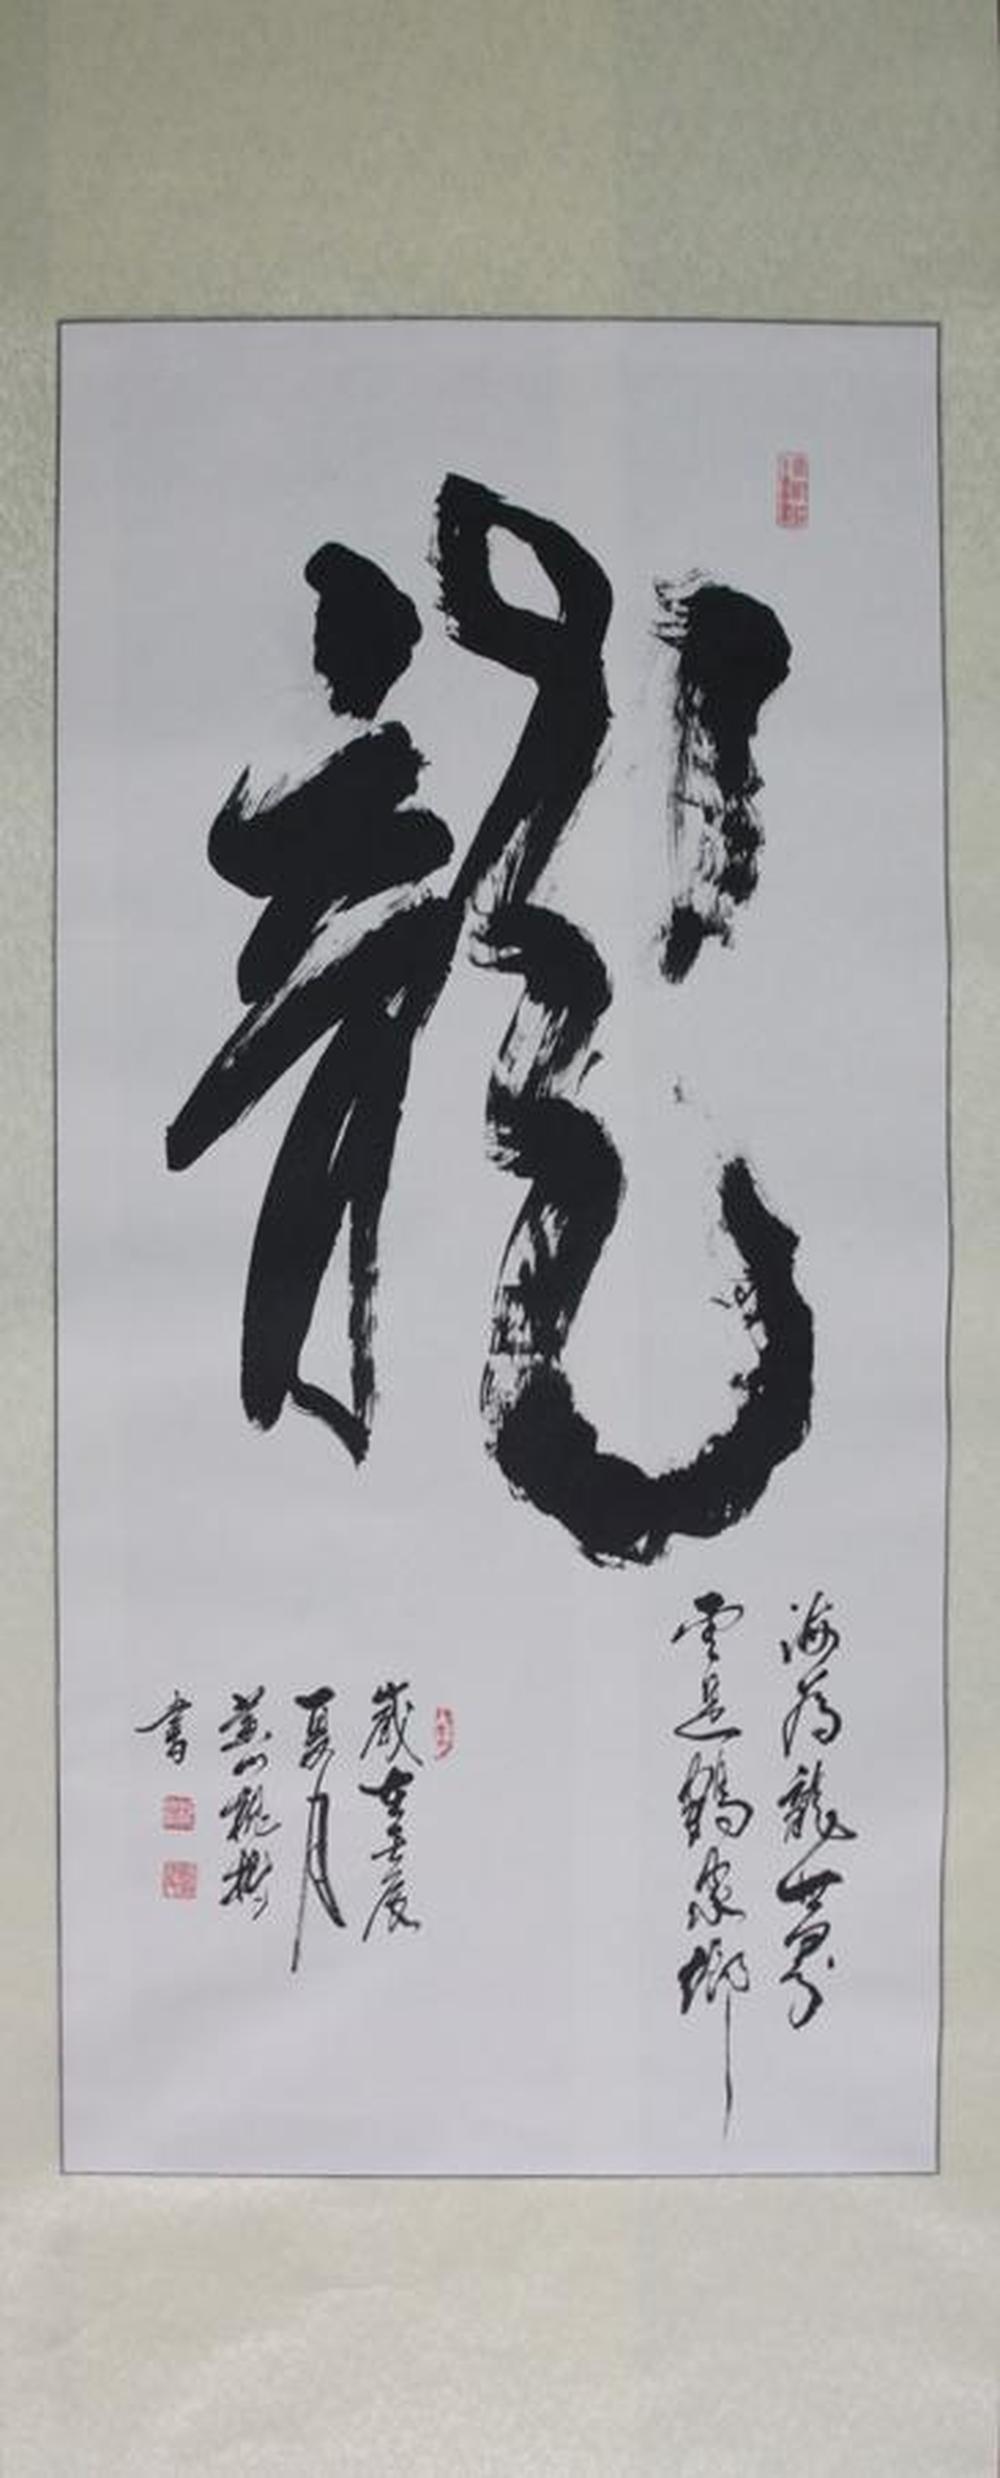 龍
海為龍世界
雲是鶴家鄉
歲在壬辰
夏月
黃山
書